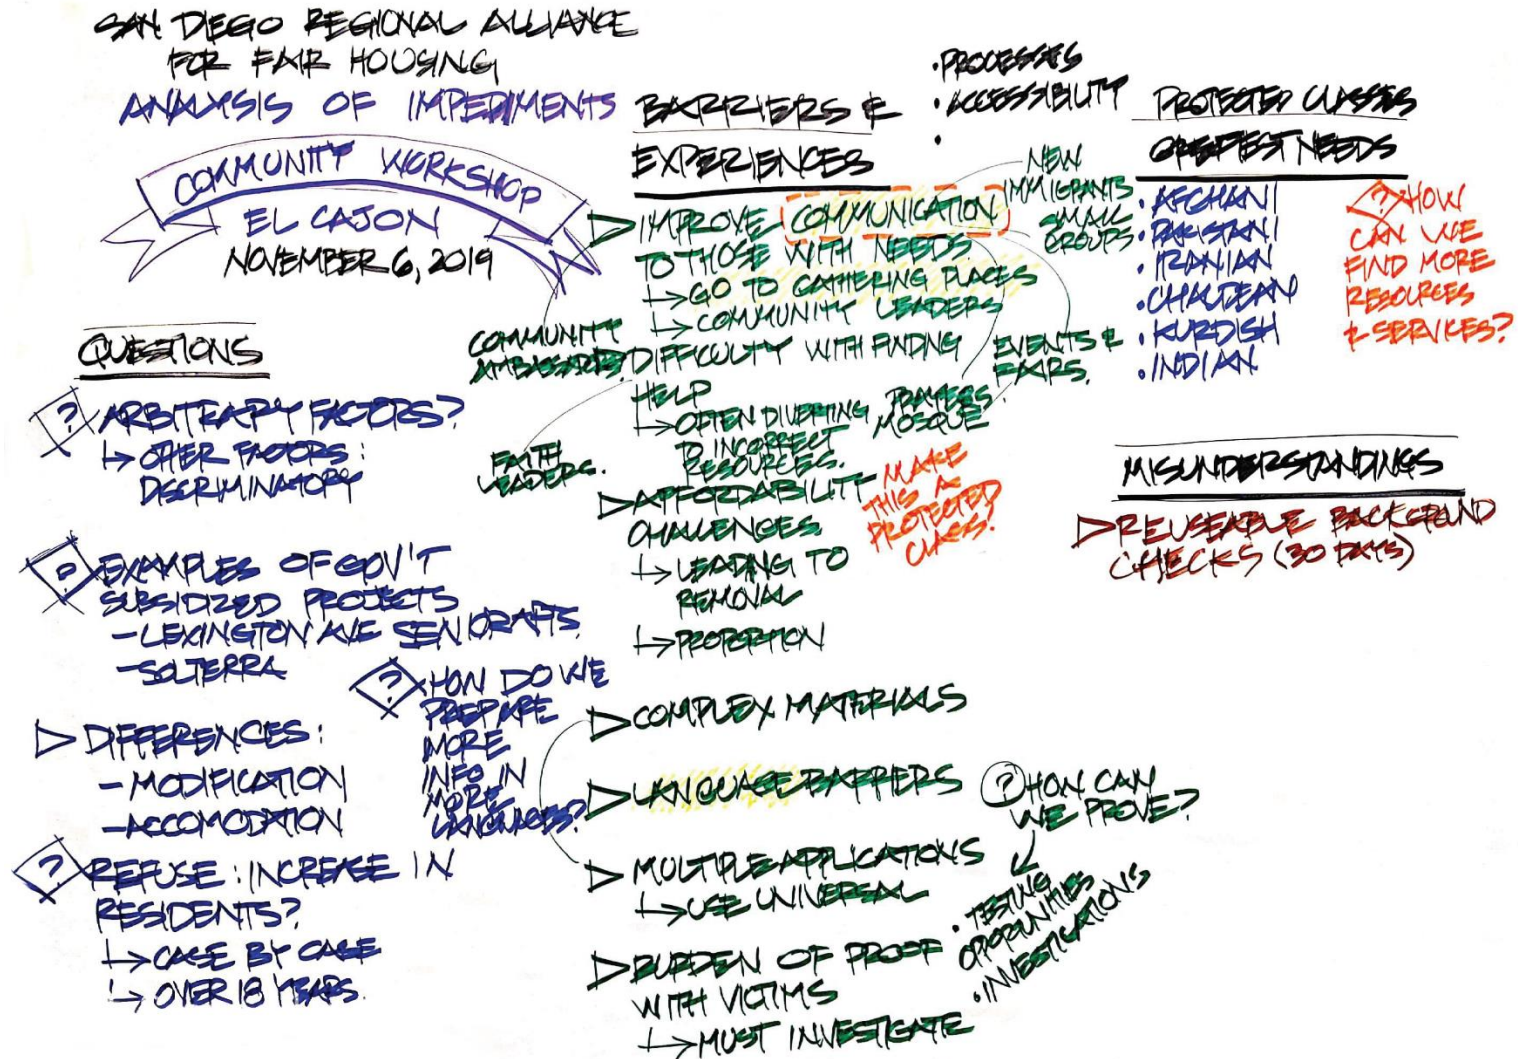 SAN DIEGO REGIONAL ALLIANCE
FOR FAIR HOUSING
ANALYSIS OF IMPEDIMENTS
COMMUNITY WORKSHOP
EL CAJON
NOVEMBER 6, 2019
QUESTIONS
? ARBITRARY FACTORS?
↳ OTHER FACTORS:
DISCRIMINATORY
? EXAMPLES OF GOV'T
SUBSIDIZED PROJECTS
- LEXINGTON AVE SENIOR APTS.
- SOLTERRA
? HOW DO WE
PREPARE
MORE
INFO IN
MORE
LANGUAGES?
▷ DIFFERENCES:
- MODIFICATION
- ACCOMODATION
? REFUSE: INCREASE IN
RESIDENTS?
↳ CASE BY CASE
↳ OVER 18 YEARS.
BARRIERS &
EXPERIENCES
• PROCESSES
• ACCESSIBILITY
•
▷ IMPROVE COMMUNICATION
TO THOSE WITH NEEDS.
↳ GO TO GATHERING PLACES
↳ COMMUNITY LEADERS
NEW
IMMIGRANTS
SMALL
GROUPS
COMMUNITY
AMBASSADORS.
FAITH
LEADERS.
EVENTS &
FAIRS.
PRAYERS
MOSQUE
DIFFICULTY WITH FINDING
HELP
↳ OFTEN DIVERTING
TO INCORRECT
RESOURCES.
▷ AFFORDABILITY
CHALLENGES
↳ LEADING TO
REMOVAL
↳ PROPORTION
MAKE
THIS A
PROTECTED
CLASS?
▷ COMPLEX MATERIALS
▷ LANGUAGE BARRIERS
▷ MULTIPLE APPLICATIONS
↳ USE UNIVERSAL
▷ BURDEN OF PROOF
WITH VICTIMS
↳ MUST INVESTIGATE
? HOW CAN
WE PROVE?
• TESTING
OPPORUNITIES
• INVESTIGATIONS
PROTECTED CLASSES
GREATEST NEEDS
• AFGHANI
• PAKISTANI
• IRANIAN
• CHALDEAN
• KURDISH
• INDIAN
? HOW
CAN WE
FIND MORE
RESOURCES
& SERVICES?
MISUNDERSTANDINGS
▷ REUSEABLE BACKGROUND
CHECKS (30 DAYS)